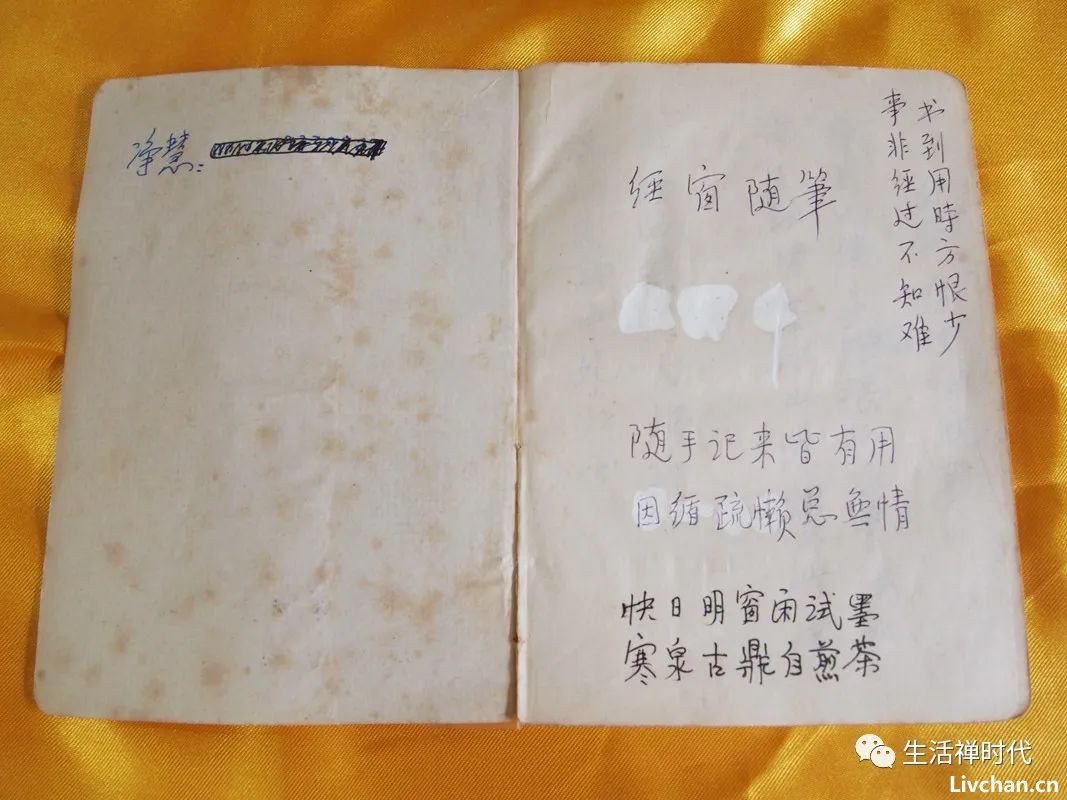 净慧:
书到用時方恨少
事非经过不知难
经窗随筆
随手记来皆有用
因循疏懒总無情
快日明窗闲试墨
寒泉古鼎自煎茶
生活禅时代
Livchan.cn